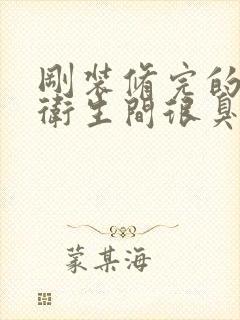 剛裝修完的
衛生間很臭
蒙某海